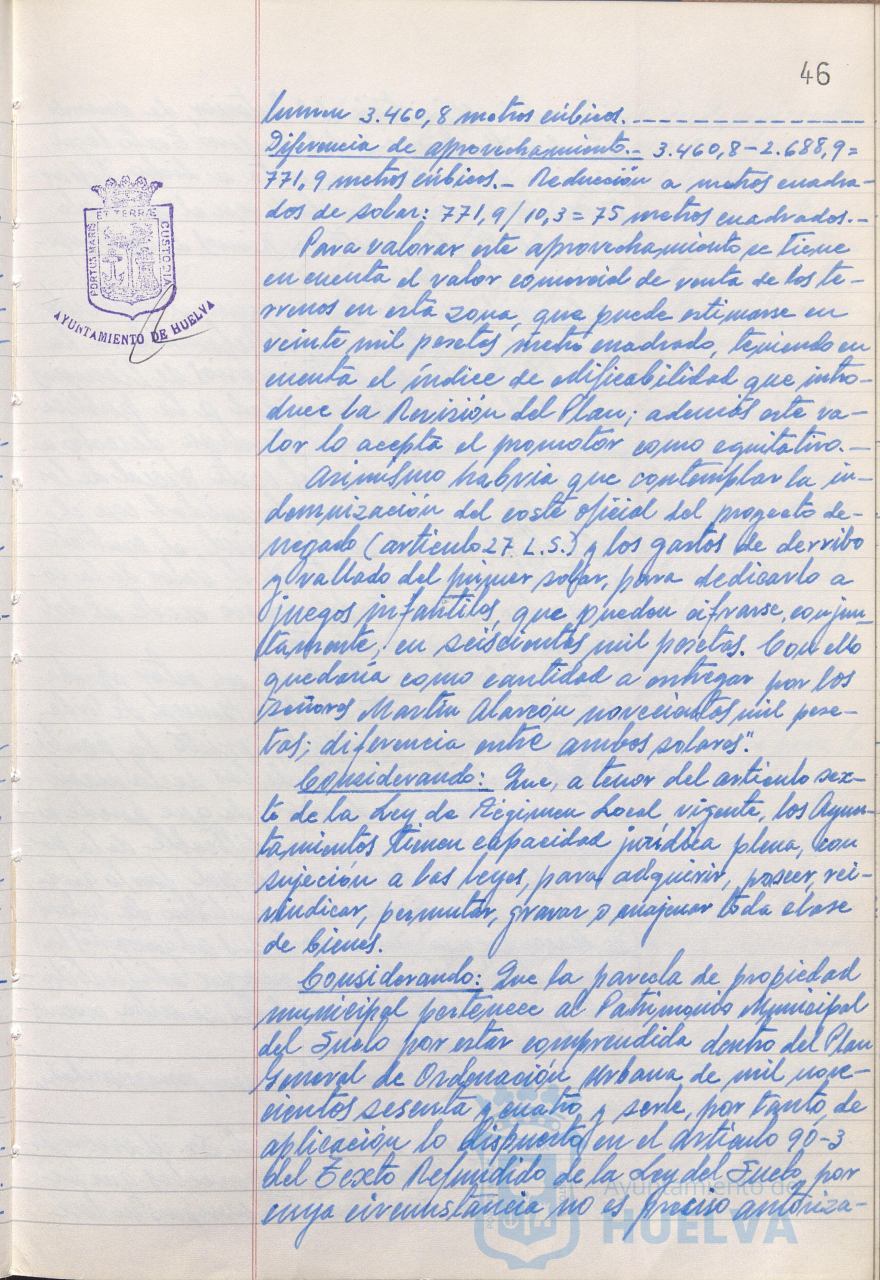 46
lumen 3.460,8 metros cúbicos.
Diferencia de aprovechamiento.- 3.460,8-2.688,9=
771,9 metros cúbicos.- Reducción a metros cuadra-
dos de solar: 771,9/10,3=75 metros cuadrados.-
Para valorar este aprovechamiento se tiene
en cuenta el valor comercial de venta de los te-
rrenos en esta zona, que puede estimarse en
veinte mil pesetas metro cuadrado, teniendo en
cuenta el índice de edificabilidad que intro-
duce la Revisión del Plan; además este va-
lor lo acepta el promotor como equitativo.-
Asimismo habria que contemplar la in-
demnización del coste oficial del proyecto de-
negado (artículo 27 L.S.) y los gastos de derribo
y vallado del primer solar, para dedicarlo a
juegos infantiles, que pueden cifrarse, conjun-
tamente, en seiscientas mil pesetas. Con ello
quedaría como cantidad a entregar por los
Señores Martín Alarcón novecientas mil pese-
tas; diferencia entre ambos solares".
Considerando: Que, a tenor del artículo sex-
to de la Ley de Régimen Local vigente, los Ayun-
tamientos tienen capacidad jurídica plena, con
sujeción a las leyes, para adquirir, poseer, rei-
vindicar, permutar, gravar o enajenar toda clase
de bienes.
Considerando: Que la parcela de propiedad
municipal pertenece al Patrimonio Municipal
del Suelo por estar comprendida dentro del Plan
General de Ordenación Urbana de mil nove-
cientos sesenta y cuatro y serle, por tanto, de
aplicación lo dispuesto en el artículo 90-3
del Texto Refundido de la Ley del Suelo, por
cuya circunstancia no es preciso autoriza-
PORTUS MARIS ET TERRÆ CUSTODIA
AYUNTAMIENTO DE HUELVA
Ayuntamiento de
HUELVA